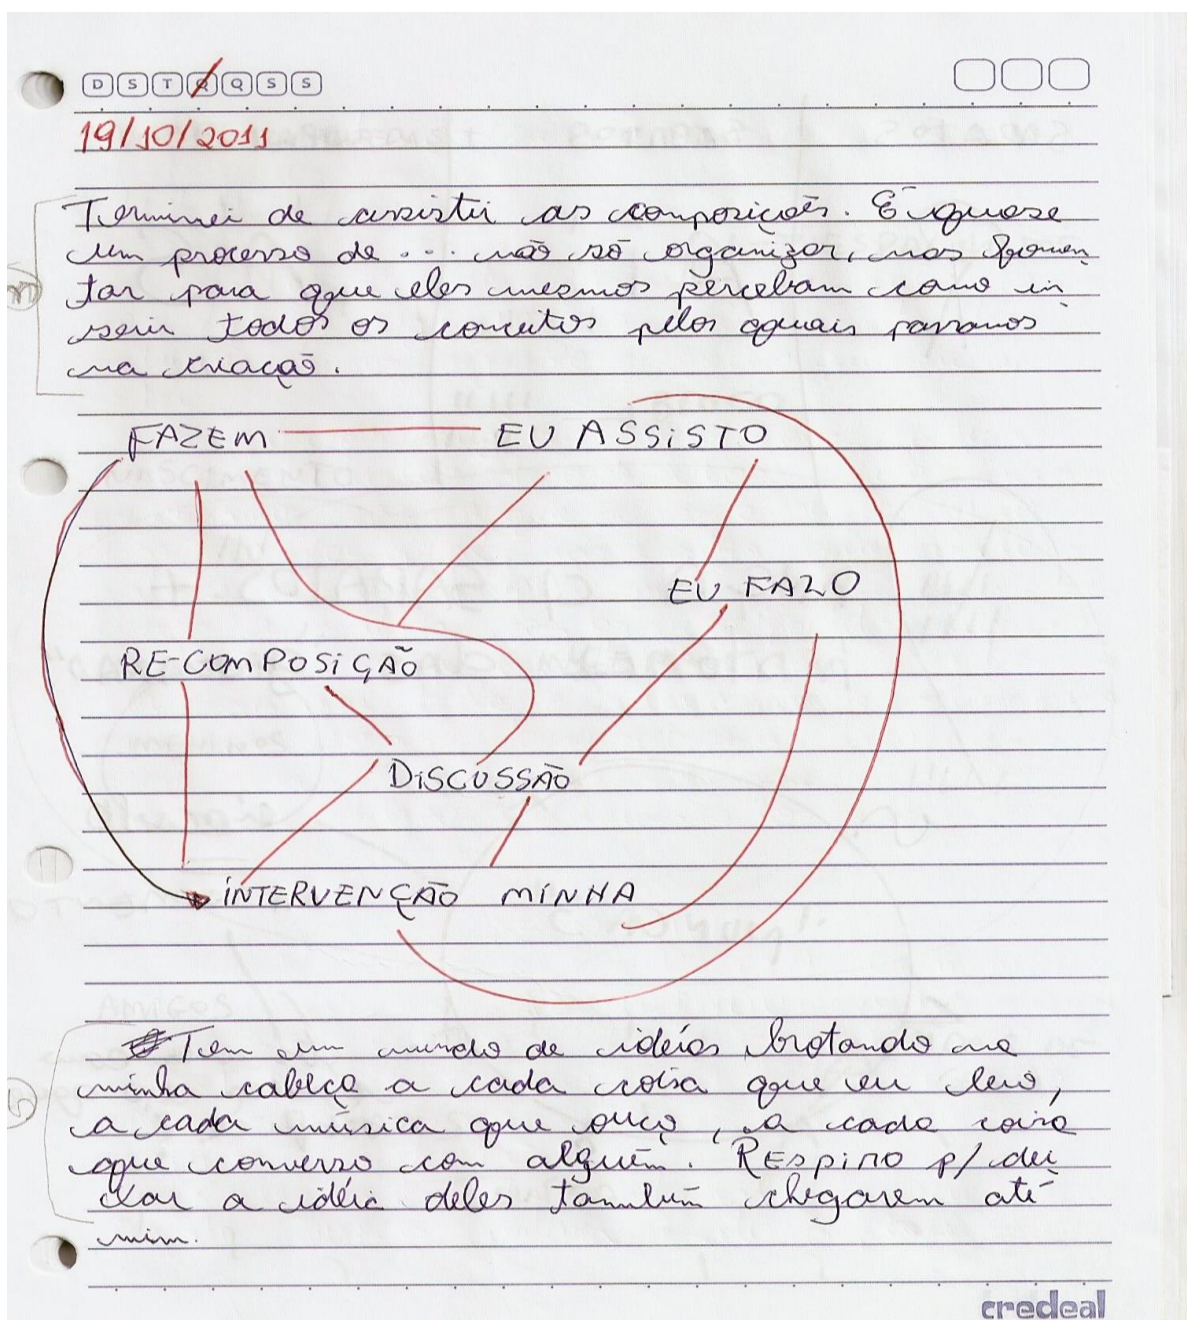 D S T Q Q S S
19/10/2011
Terminei de assistir as composições. É quase
um processo de ... não só organizar, mas fomen
tar para que eles mesmos percebam como in
serir todos os conceitos pelos quais passamos
na criação.
FAZEM EU ASSISTO
EU FALO
RE-COMPOSIÇÃO
DISCUSSÃO
INTERVENÇÃO MINHA
Tem um mundo de idéias brotando na
minha cabeça a cada coisa que eu leio,
a cada música que ouço, a cada coisa
que converso com alguém. Respiro p/ dei
xar a idéia deles também chegarem até
mim.
credeal